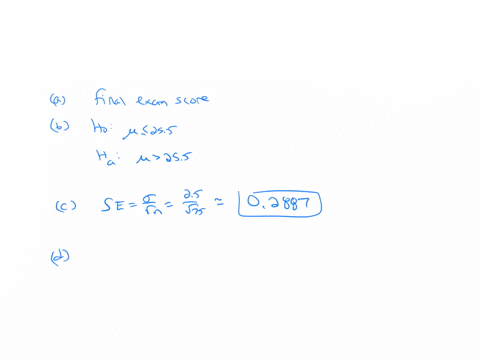 (a) final exam score
(b) H₀: μ≤25.5
Hₐ: μ>25.5
(c) SE = σ/√n = 2.5/√75 ≈ 0.2887
(d)